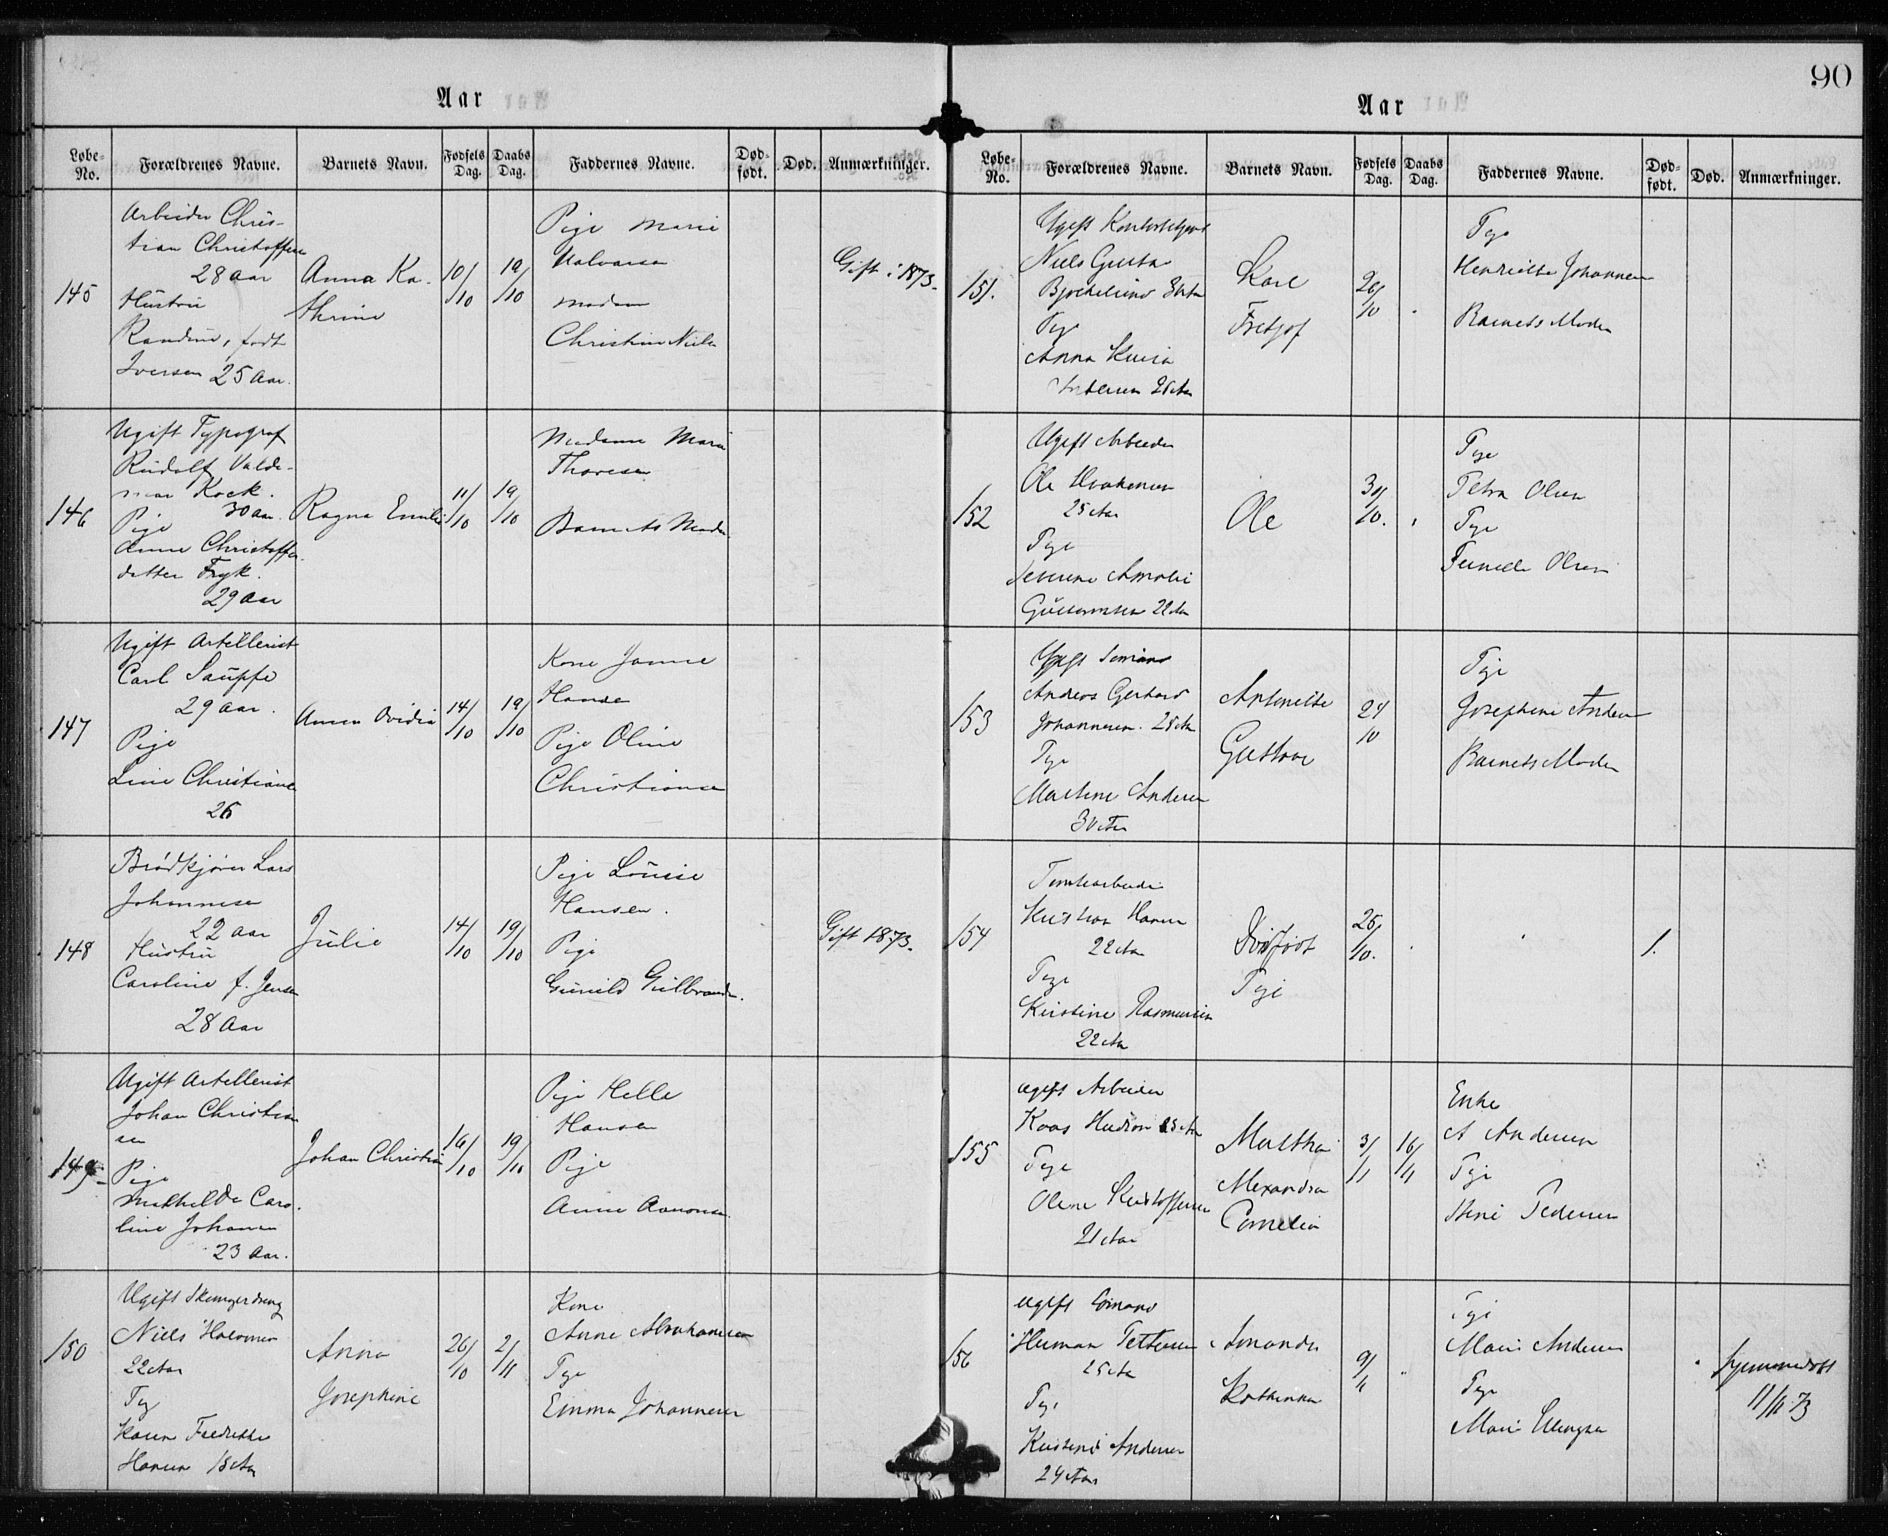 90
Aar
Løbe-No. Forældrenes Navne. Barnets Navn. Fødsels Dag. Daabs Dag. Faddernes Navne. Død-født. Død. Anmærkninger.
145
Arbeider Chris-
tian Christoffersen
28 Aar
Hustru
Randine, født
Iversen 25 Aar.
Anna Ka-
thrine
10/10
19/10
Pige Marie
Halvorsen
Madam
Christine Niels
Gift i 1873.
146
Ugift Typograf
Rudolf Valde-
mar Kock.
30 Aar.
Pige
Anne Christoffer
datter Fryk.
29 Aar
Ragna Emilie
11/10
19/10
Madame Marie
Thoresen
Barnets Moder
147
Ugift Artillerist
Carl Sauppe
29 Aar.
Pige
Line Christianse
26
Anna Ovidia
14/10
19/10
Kone Janne
Hansen
Pige Oline
Christiansen
148
Brødkjører Lars
Johannesen
22 Aar
Hustru
Caroline f. Jensen
28 Aar
Julie
14/10
19/10
Pige Louise
Hansen.
Pige
Gunild Gulbrands.
Gift 1873.
149
Ugift Artillerist
Johan Christian
sen
Pige
Mathilde Caro-
line Johansen
23 Aar.
Johan Christian
16/10
19/10
Pige Helle
Hansen
Pige
Anne Aanonsen
150
Ugift
Niels Halvorsen
22 Aar
Pige
Karen Fredrikke
Hansen 18 Aar
Anna
Josephine
26/10
2/11
Kone
Anne Abrahamsen
Pige
Emma Johannesen
Aar
Løbe-No. Forældrenes Navne. Barnets Navn. Fødsels Dag. Daabs Dag. Faddernes Navne. Død-født. Død. Anmærkninger.
151.
Ugift
Niels Gusta
Pige
Anna
Andersen 26 Aar
Karl
Fritjof
20/10
Pige
Henriette Johannesen
Barnets Moder
152
Ugift Arbeider
Ole Haakensen
25 Aar
Pige
Severine Amalie
22 Aar
Ole
30/10.
Pige
Petra Olsen
Pige
Olsen
153
Ugift Sømand
Anders Gerhard
Johannesen. 28 Aar
Pige
Martine Andersen
30 Aar
Antonette
Gustava
24
10
Pige
Josephine Andersen
Barnets Moder
154
Tomtearbeider
Kristian Hansen
22 Aar
Pige
Kirstine Rasmussen
22 Aar
Dødfødt
Pige
25/10.
1.
155
Ugift Arbeider
Pige
Olene Kristoffersen
21 Aar
Martha
Alexandra
Cornelia
3/11
16/11
Enke
A Andersen
Pige
Stine Pedersen
156
Ugift Sømand
Herman Pettersen
25 Aar
Pige
Kristine Andersen
24 Aar
Amanda
Kathinka
9/11
Pige
Marie Andersen
Pige
Marie
hjemmedøbt
11/11 73